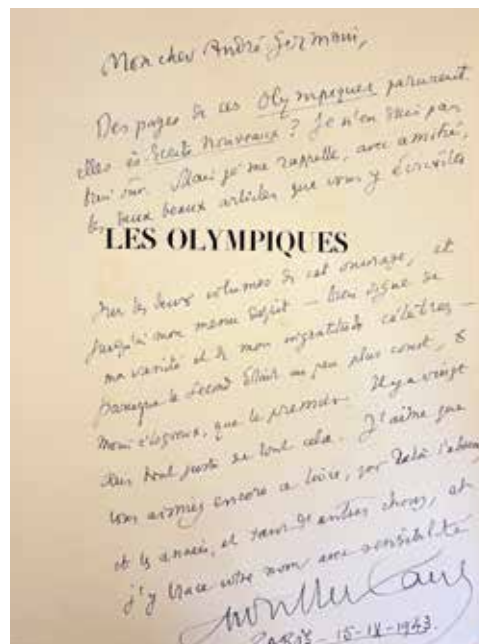 Mon cher André Germain,
Des pages de ces Olympiques parurent
elles ès Ecrits Nouveaux ? Je n'en suis pas
bien sûr. Mais je me rappelle, avec amitié,
les deux beaux articles que vous y écrivîtes
LES OLYMPIQUES
sur les deux volumes de cet ouvrage, et
jusqu'à mon menu dépit — bien digne de
ma vanité et de mon ingratitude célèbres —
parce que le second était un peu plus court, &
moins élogieux, que le premier. Il y a vingt
ans tout juste de tout cela. J'aime que
vous aimiez encore ce livre, par delà l'absence
et les années, et tant d'autres choses, et
j'y trace votre nom avec sensibilité
Montherlant
PARIS - 15-IX-1943.